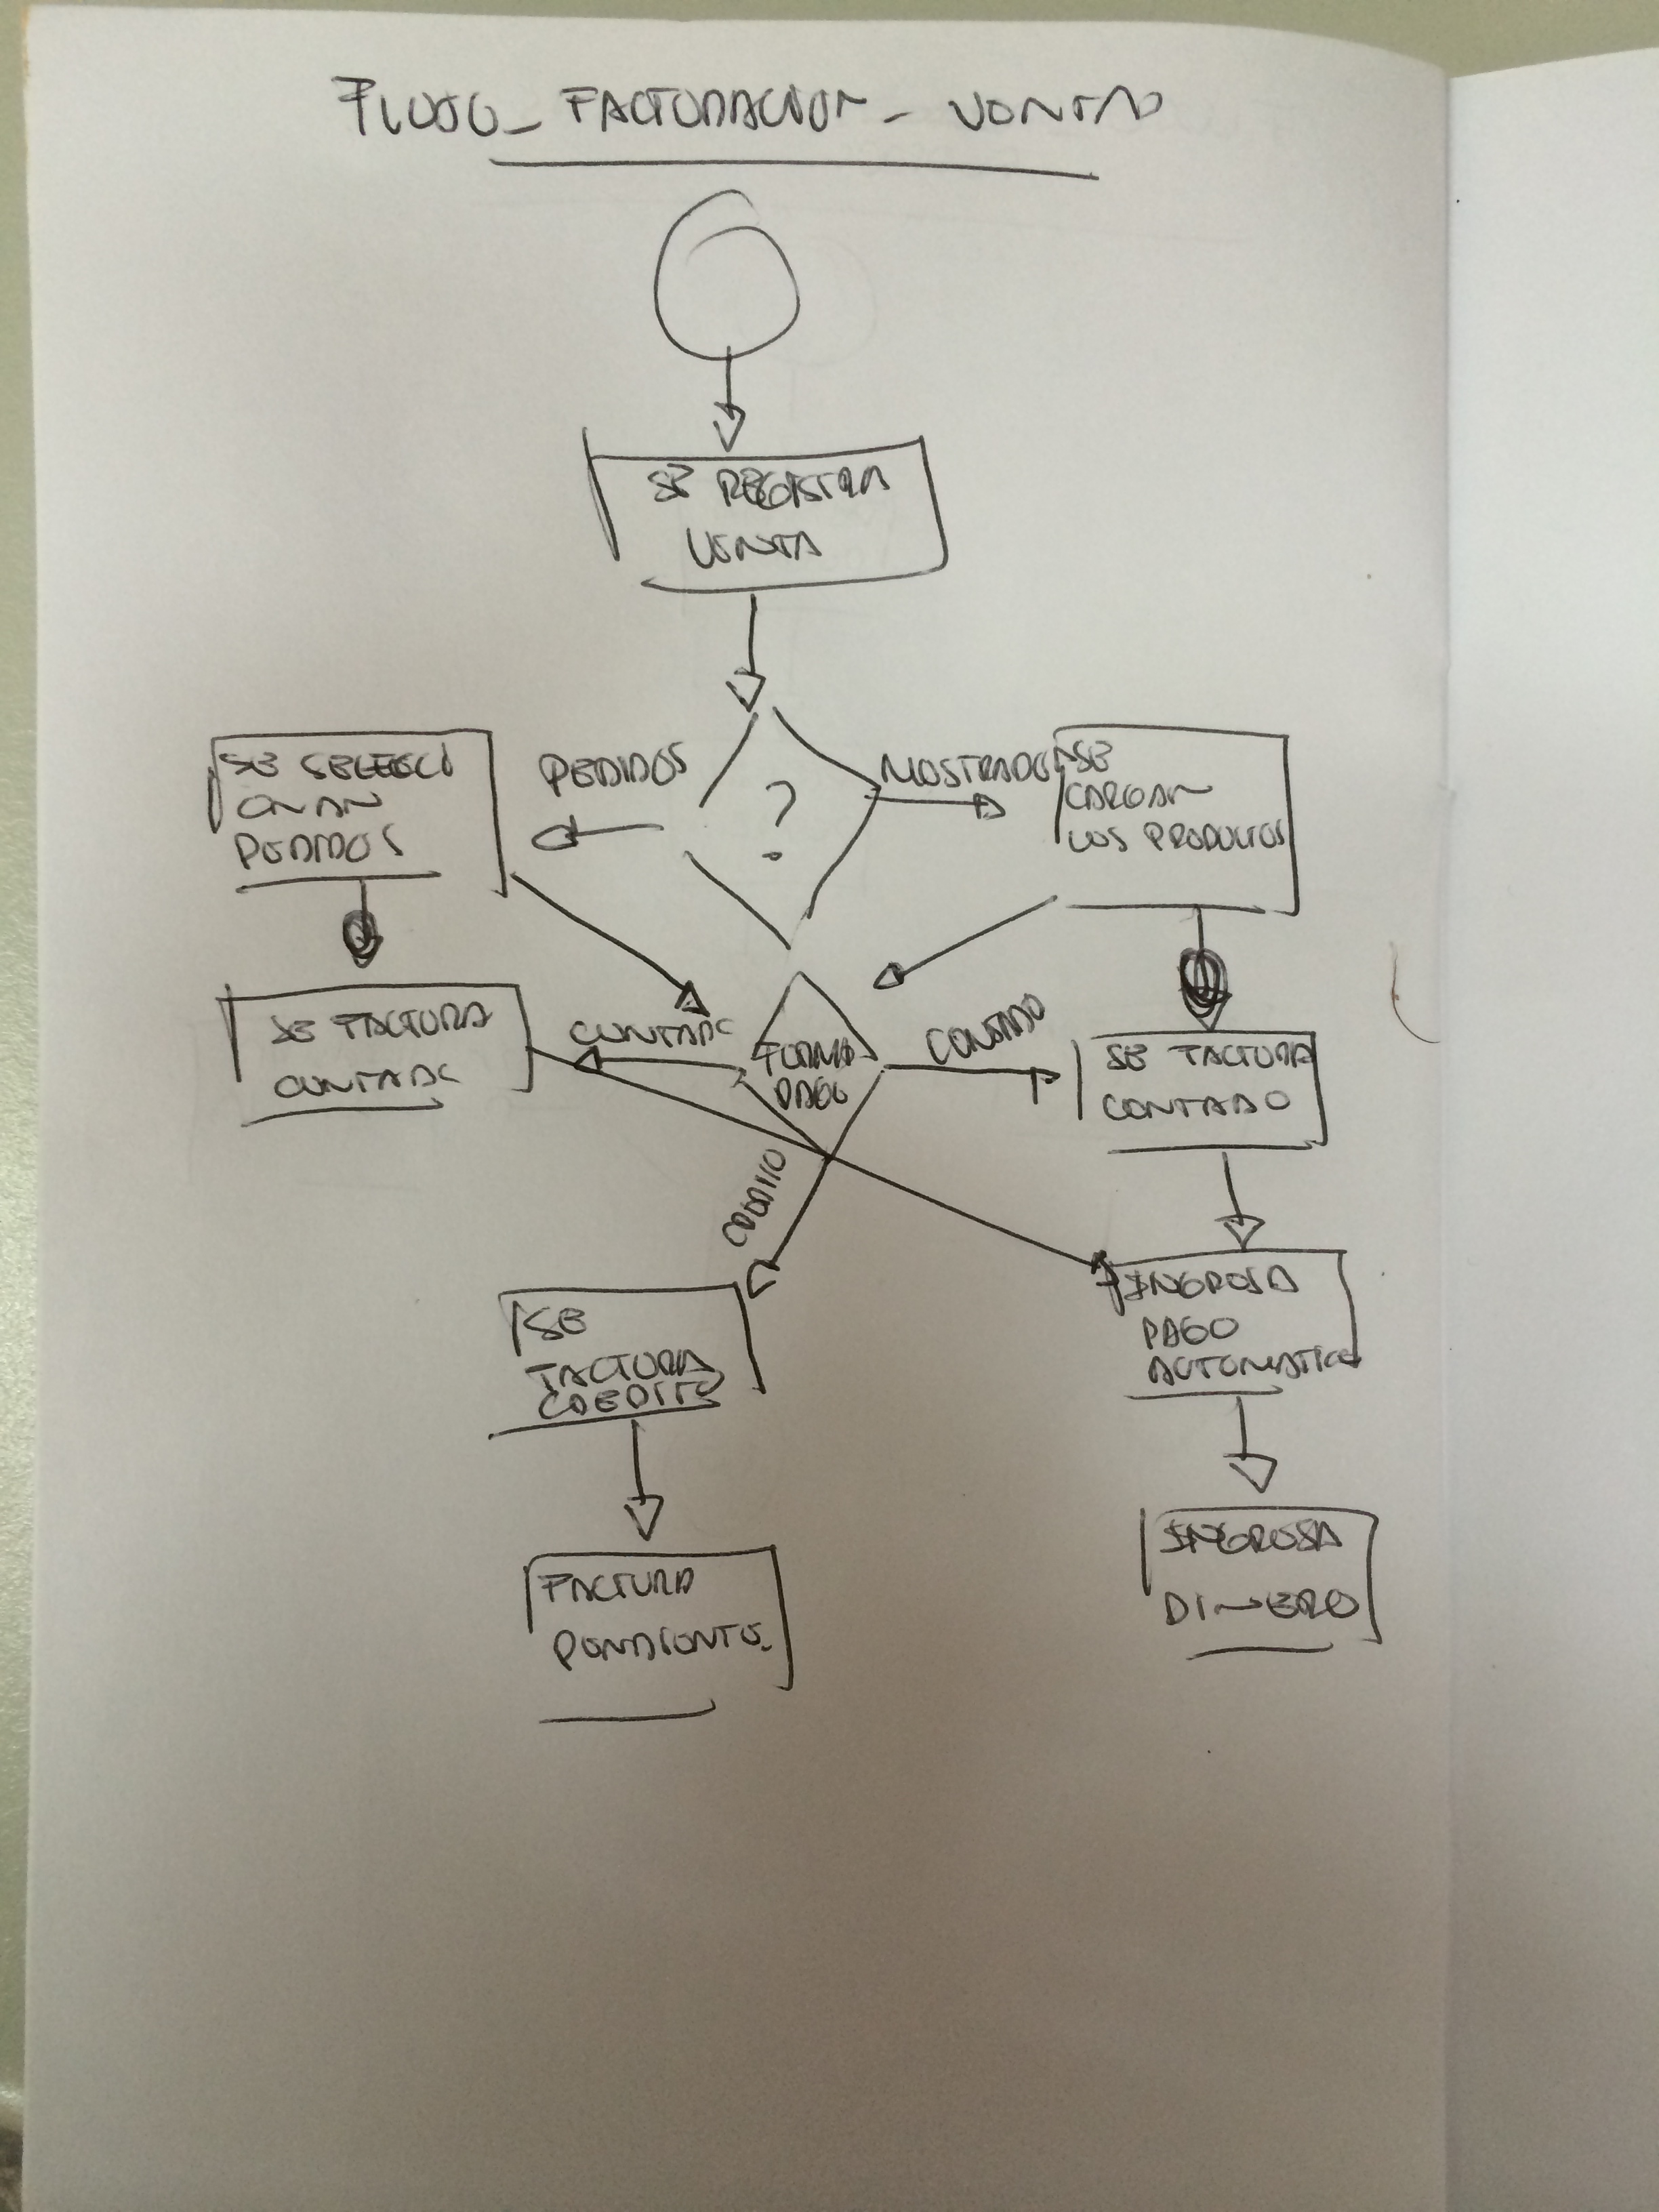 FLUJO_FACTURACION_VENTAS
SE REGISTRA
VENTA
PEDIDOS
?
MOSTRADOR
SE SELECCI
ONAN
PEDIDOS
SE
CARGAN
LOS PRODUCTOS
SE FACTURA
CONTADO
CONTADO
FORMA
PAGO
CONTADO
SE FACTURA
CONTADO
CREDITO
SE
FACTURA
CREDITO
INGRESA
PAGO
AUTOMATICO
FACTURA
PENDIENTE.
INGRESA
DINERO